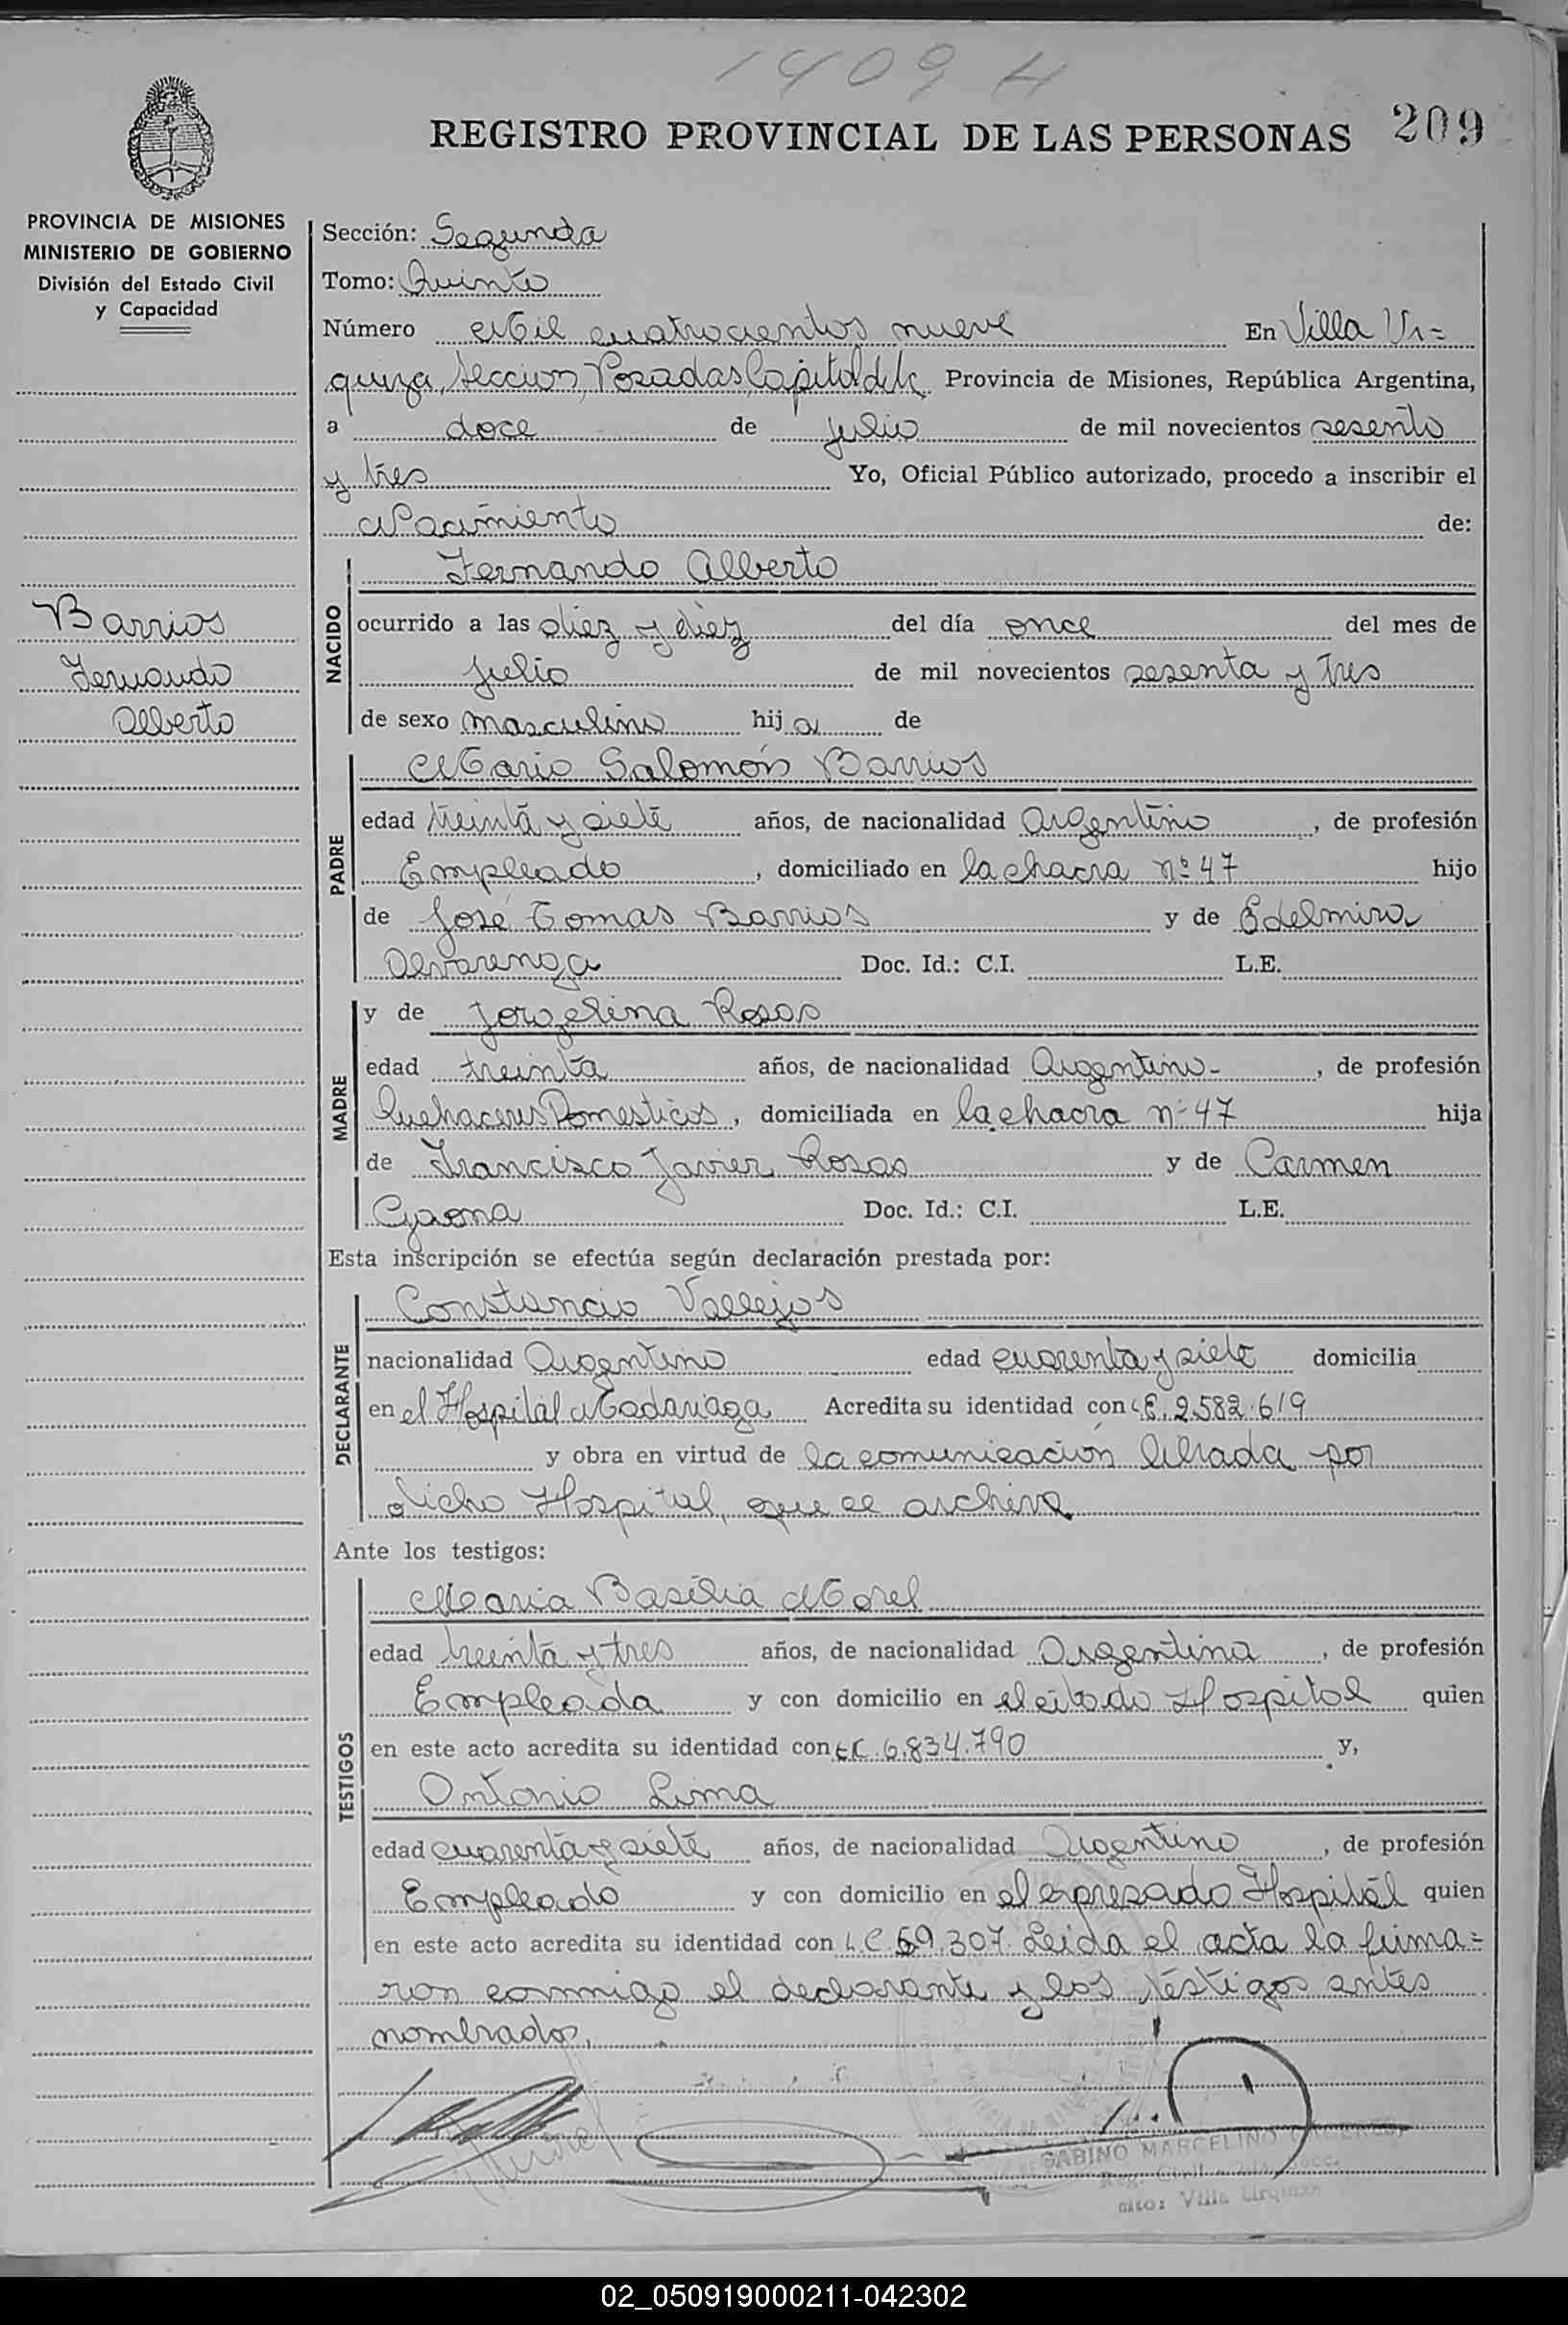 1409 H
REGISTRO PROVINCIAL DE LAS PERSONAS 209
PROVINCIA DE MISIONES
MINISTERIO DE GOBIERNO
División del Estado Civil
y Capacidad
Sección: Segunda
Tomo: Quinto
Número Mil cuatrocientos nueve En Villa Ur=
quiza, Seccion, Posadas, Capital de la Provincia de Misiones, República Argentina,
a doce de julio de mil novecientos sesenta
y tres Yo, Oficial Público autorizado, procedo a inscribir el
Nacimiento de:
NACIDO
Fernando Alberto
Barrios
Fernando
Alberto
ocurrido a las diez y diez del día once del mes de
julio de mil novecientos sesenta y tres
de sexo masculino hij o de
PADRE
Mario Salomón Barrios
edad treinta y siete años, de nacionalidad Argentino, de profesión
Empleado, domiciliado en la chacra nº 47 hijo
de José Tomas Barrios y de Edelmira
Alvarenga Doc. Id.: C.I. L.E.
MADRE
y de Jorgelina Rosas
edad treinta años, de nacionalidad Argentina-, de profesión
Quehaceres Domesticos, domiciliada en la chacra nº 47 hija
de Francisco Javier Rosas y de Carmen
Gaona Doc. Id.: C.I. L.E.
Esta inscripción se efectúa según declaración prestada por:
DECLARANTE
Constancio Vallejos
nacionalidad Argentino edad cuarenta y siete domicilia
en el Hospital Madariaga Acredita su identidad con L.E. 2.582.619
y obra en virtud de la comunicación librada por
dicho Hospital, que se archiva
Ante los testigos:
TESTIGOS
Maria Basilia Morel
edad treinta y tres años, de nacionalidad Argentina, de profesión
Empleada y con domicilio en el citado Hospital quien
en este acto acredita su identidad con L.C. 6.834.790 y,
Antonio Lima
edad cuarenta y siete años, de nacionalidad Argentino, de profesión
Empleado y con domicilio en el expresado Hospital quien
en este acto acredita su identidad con L.C. 69.307. Leida el acta la firma=
ron conmigo el declarante y los testigos antes
nombrados.
GABINO MARCELINO
Reg. Civil
Villa Urquiza
02_050919000211-042302